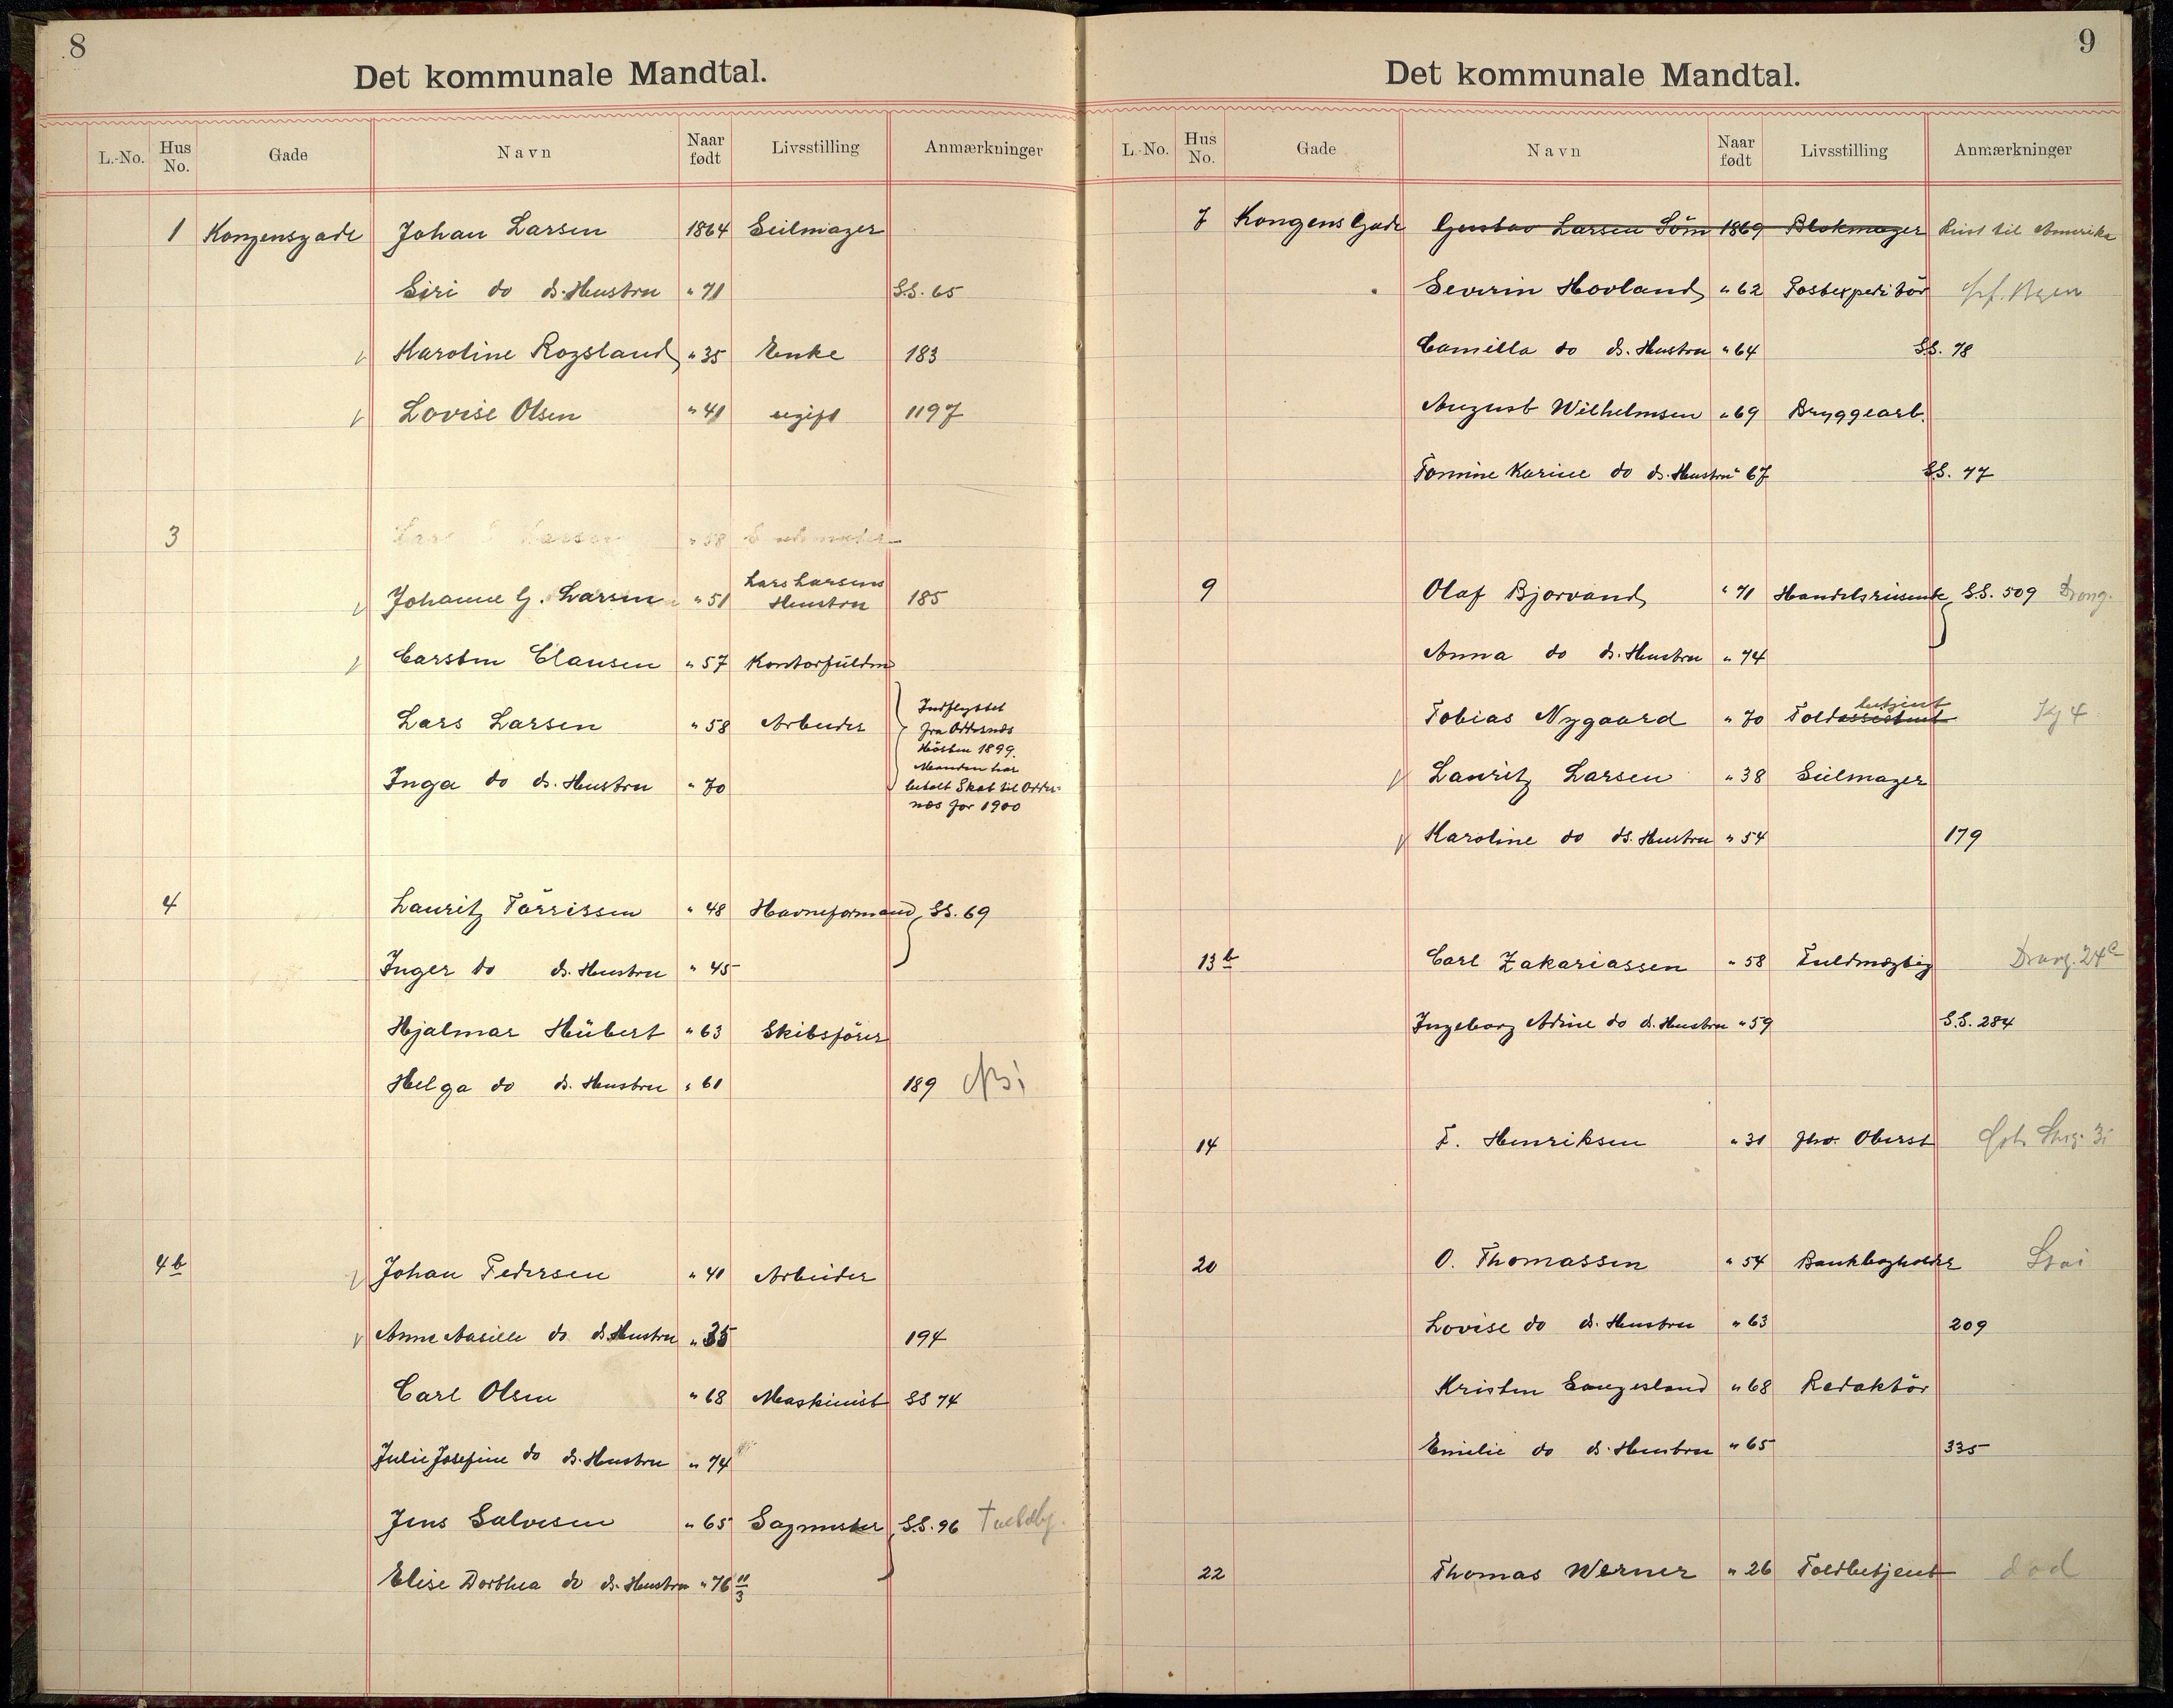 8
Det kommunale Mandtal.
L.-No. Hus No. Gade Navn Naar født Livsstilling Anmærkninger
1 Kongensgade Johan Larsen 1864 Seilmager
Siri do ds. Hustru " 71 S.S. 65
Karoline Rogsland " 35 Enke 183
Lovise Olsen " 41 ugift 1197
3 " 58
Johanne G. Larsen " 51 Lars Larsens Hustru 185
Carsten Clausen " 57 Kontorfuldm
Lars Larsen " 58 Arbeider Indflyttet fra Oddernes Hösten 1899. Manden har
Inga do ds. Hustru " 70 betalt Skat til Odder-
nes for 1900
4 Lauritz Törrissen " 48 Havneformand S.S. 69
Inger do ds. Hustru " 45
Hjalmar Hübert " 63 Skibsförer
Helga do ds. Hustru " 61 189
4b Johan Pedersen " 40 Arbeider
Anne Aasille do ds. Hustru " 35 194
Carl Olsen " 68 Maskinist SS 74
Julie Josefine do ds. Hustru " 74
Jens Salvesen " 65 Sagmester S.S. 96
Elise Dorthea do ds. Hustru " 76 11/3
9
Det kommunale Mandtal.
L.-No. Hus No. Gade Navn Naar født Livsstilling Anmærkninger
7 Kongens Gade Gustav Larsen Söm 1869 Blokmager Reist til Amerika
Severin Hovland " 62 Postexpeditör
Camilla do ds. Hustru " 64 S.S. 78
August Wilhelmsen " 69 Bryggearb.
Tomine Karine do ds. Hustru " 67 S.S. 77
9 Olaf Bjorvand " 71 Handelsreisende S.S. 509 Drong.
Anna do ds. Hustru " 74
betjent
Tobias Nygaard " 70 Toldassistent Kg 4
Lauritz Larsen " 38 Seilmager
Karoline do ds. Hustru " 54 179
13b Carl Zakariassen " 58 Fuldmægtig Drong. 24c
Ingeborg Adine do ds. Hustru " 59 S.S. 284
14 F. Henriksen " 31 fhv. Oberst
20 O. Thomassen " 54 Bankbogholder
Lovise do ds. Hustru " 63 209
Kristen Langesland " 68 Redaktör
Emilie do ds. Hustru " 65 335
22 Thomas Werner " 26 Toldbetjent död